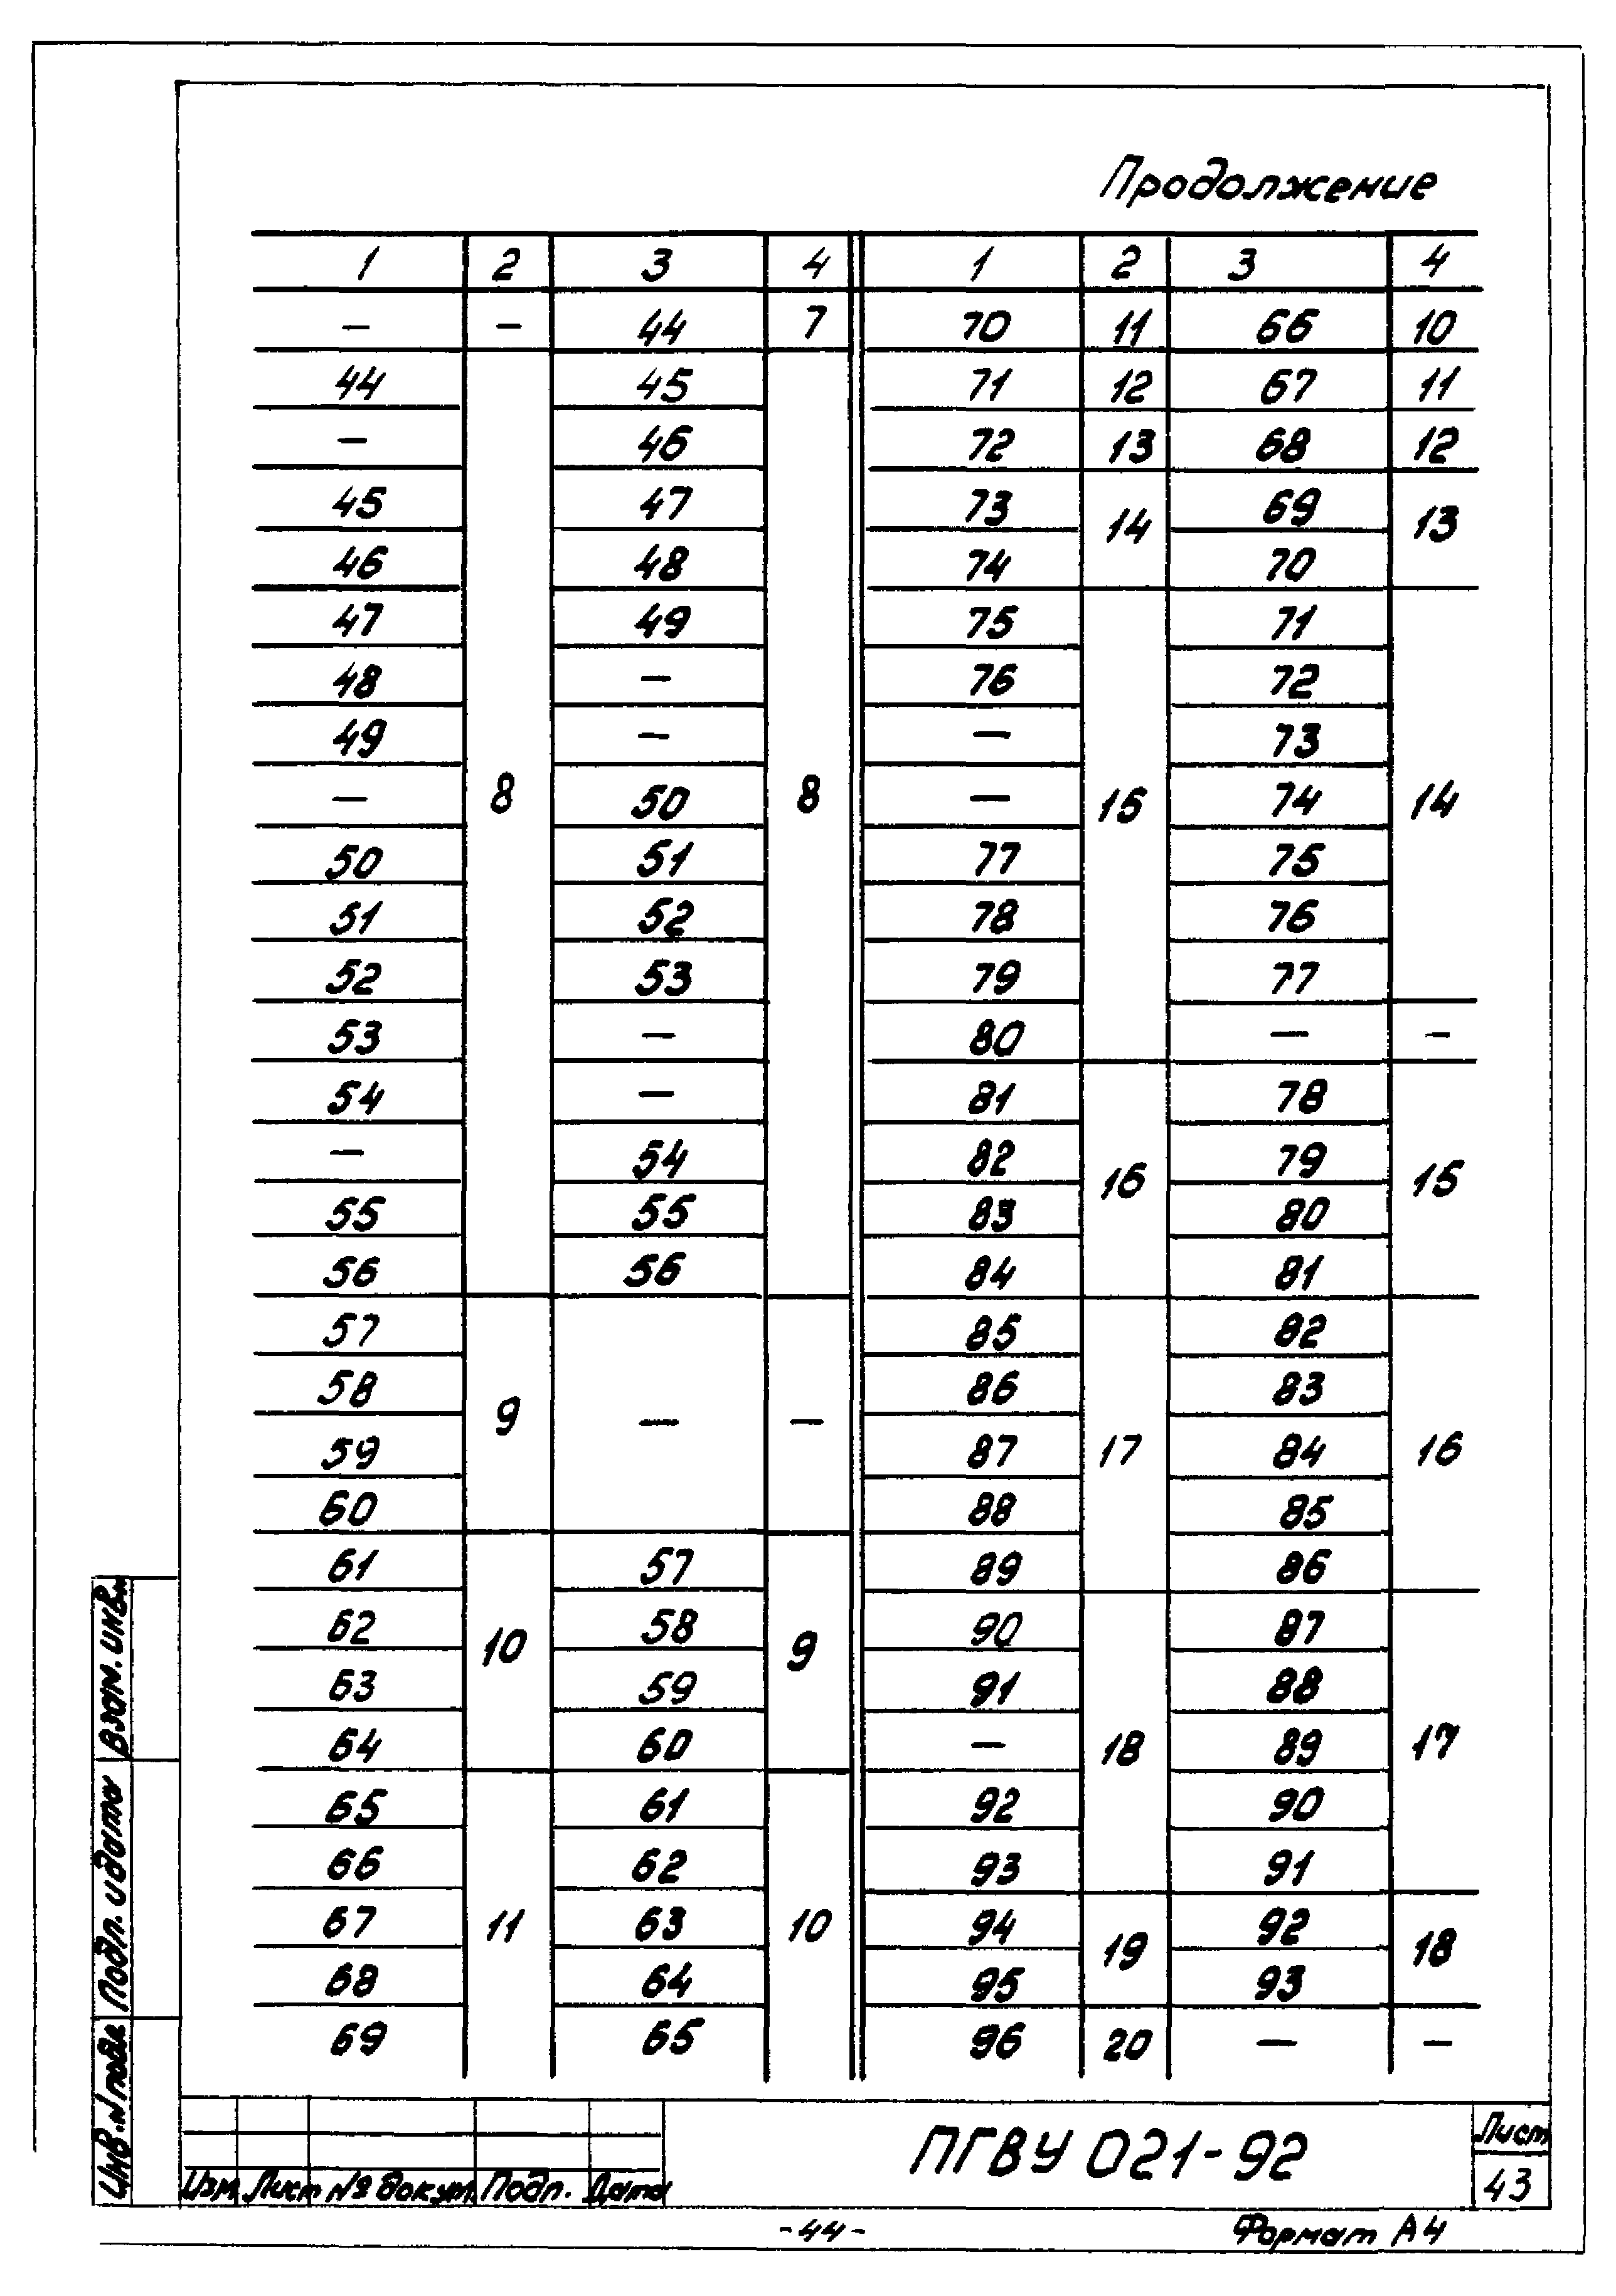 Продолжение
1 2 3 4 1 2 3 4
– – 44 7 70 11 66 10
44 45 71 12 67 11
– 46 72 13 68 12
45 47 73 14 69 13
46 48 74 70
47 49 75 71
48 – 76 72
49 – – 73
– 8 50 8 – 15 74 14
50 51 77 75
51 52 78 76
52 53 79 77
53 – 80 – –
54 – 81 78
– 54 82 16 79 15
55 55 83 80
56 56 84 81
57 85 82
58 9 – – 86 83
59 87 17 84 16
60 88 85
61 57 89 86
62 10 58 9 90 87
63 59 91 88
64 60 – 18 89 17
65 61 92 90
66 62 93 91
67 11 63 10 94 19 92 18
68 64 95 93
69 65 96 20 – –
Взам. инв.№
Подл. и дата
Инв. № подл
Изм Лист № докум. Подп. Дата
ПГВУ 021-92
Лист
43
-44-
Формат А4